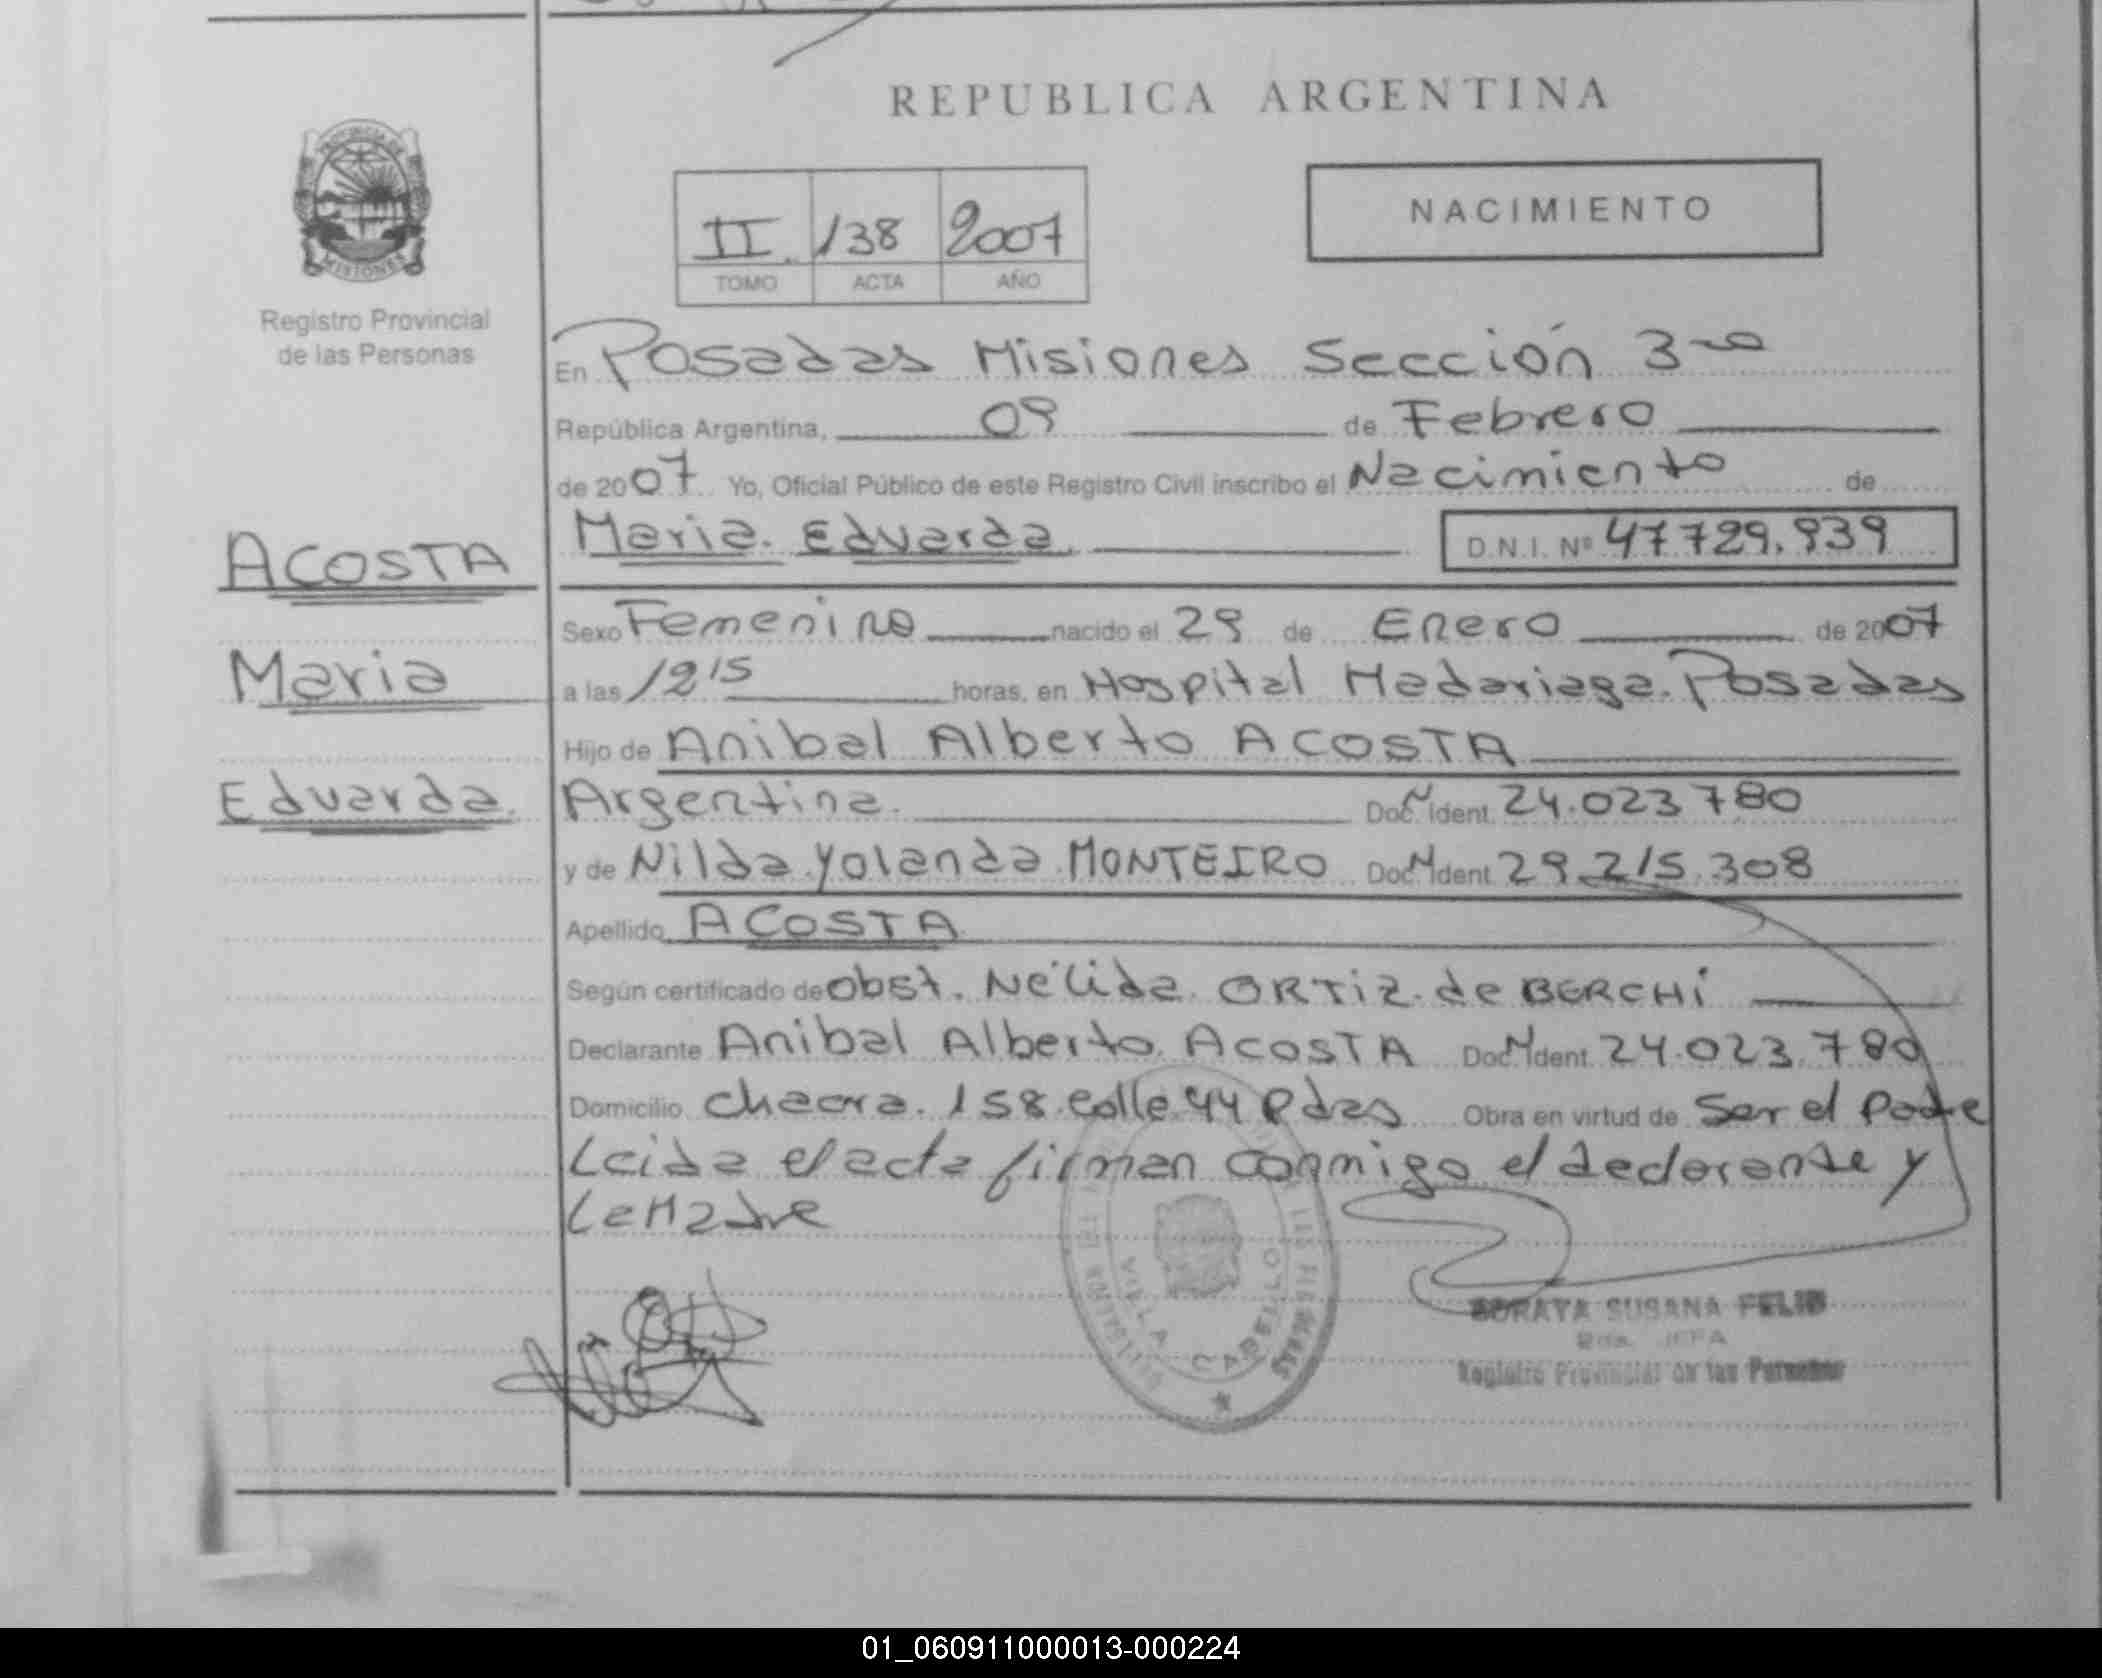 REPUBLICA ARGENTINA
PROVINCIA DE
MISIONES
Registro Provincial
de las Personas
NACIMIENTO
II 138 2007
TOMO ACTA AÑO
En Posadas Misiones Sección 3ra
República Argentina, 09 de Febrero
de 2007 Yo, Oficial Público de este Registro Civil inscribo el Nacimiento de
Maria Eduarda D.N.I. Nº 47.729.939
ACOSTA
Maria
Eduarda
Sexo Femenino nacido el 29 de Enero de 2007
a las 12 15 horas, en Hospital Madariaga. Posadas
Hijo de Anibal Alberto ACOSTA
Argentina. Doc. N Ident. 24.023 780
y de Nilda Yolanda MONTEIRO Doc. N Ident. 29.215.308
Apellido ACOSTA
Según certificado de Obst. Nélida ORTIZ de BERCHI
Declarante Anibal Alberto ACOSTA Doc. N Ident. 24.023.780
Domicilio chacra. 158 calle 44 Pdas Obra en virtud de Ser el Padre
Leida el acta firman conmigo el declarante y
La Madre
VILLA CABELLO
SORAYA SUSANA FELIP
JEFA
Registro Provincial de las Personas
01_060911000013-000224